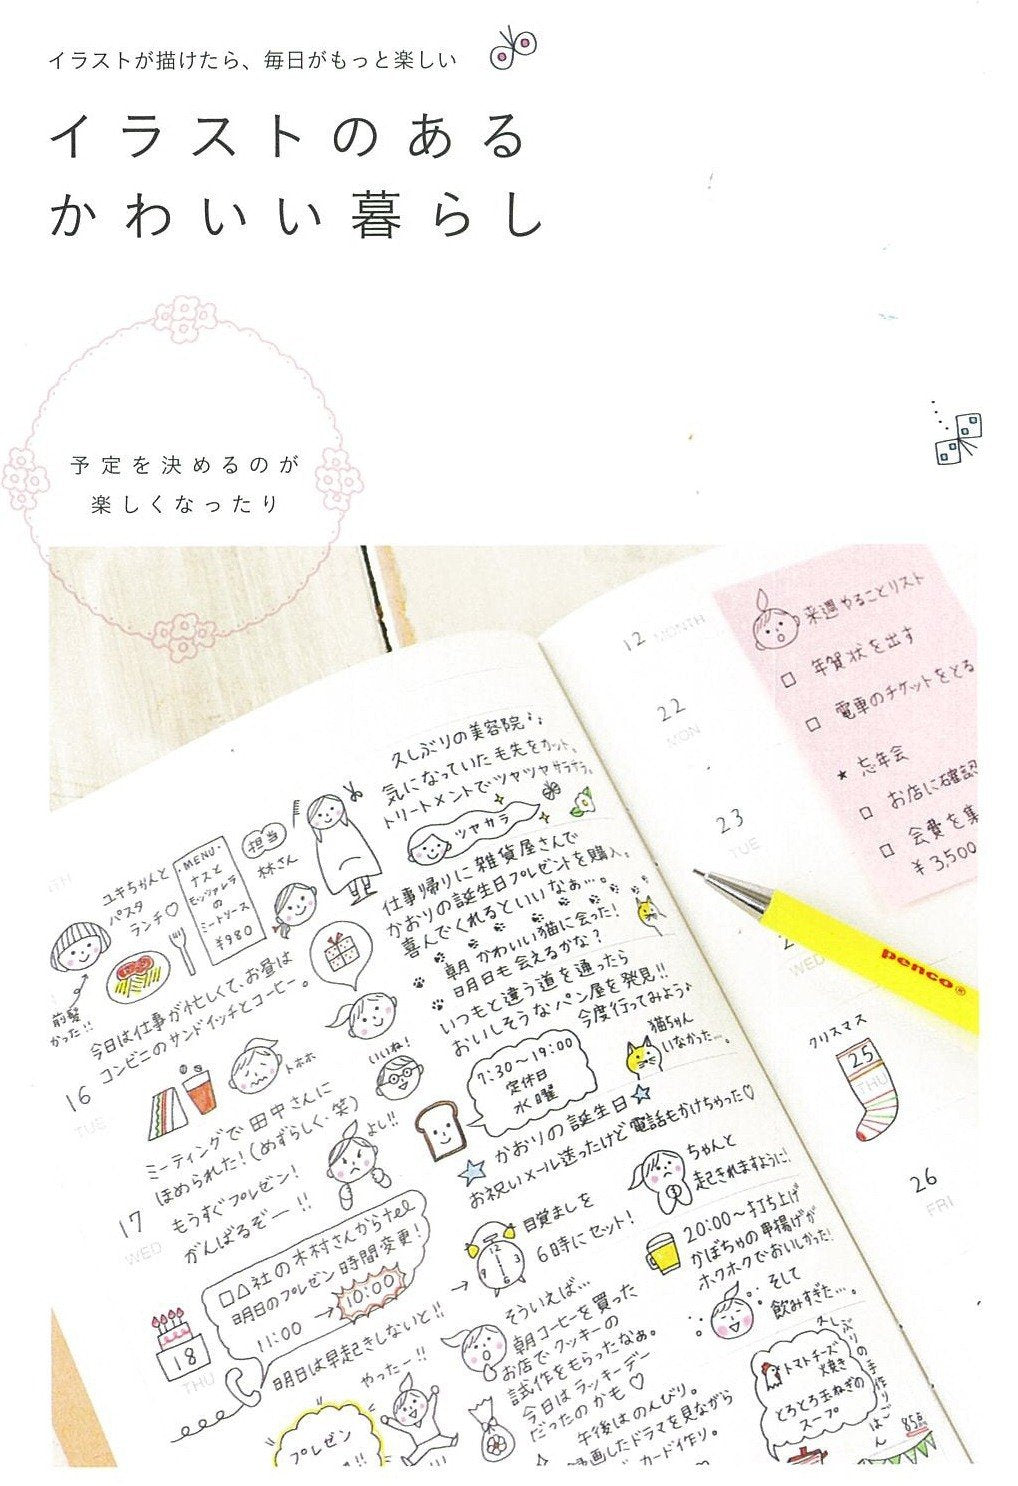 イラストが描けたら、毎日がもっと楽しい
イラストのある
かわいい暮らし
予定を決めるのが
楽しくなったり
ユキちゃんと
パスタ
ランチ♡
・MENU・
ナスと
モッツァレラ
の
ミートソース
¥980
担当
林さん
前髪
かった!!
今日は仕事が忙しくて、お昼は
コンビニのサンドイッチとコーヒー。
トホホ
いいね!
16
TUE
ミーティングで田中さんに
ほめられた!(めずらしく・笑)
もうすぐプレゼン!
がんばるぞー!!
よし!!
17
WED
□△社の木村さんからtel
明日のプレゼン時間変更!
11:00 → 10:00
明日は早起きしないと!!
18
THU
やったー!!
プレゼン
久しぶりの美容院♪
気になっていた毛先をカット。
トリートメントでツヤツヤサラサラ。
ツヤサラ
仕事帰りに雑貨屋さんで
かおりの誕生日プレゼントを購入。
喜んでくれるといいなぁ…。
朝かわいい猫に会った!
明日も会えるかな?
いつもと違う道を通ったら
おいしそうなパン屋を発見!!
今度行ってみよう♪
7:30~19:00
定休日
水曜
猫ちゃん
いなかったー。
かおりの誕生日☆
お祝いメール送ったけど電話もかけちゃった♡
→
目覚ましを
6時にセット!
ちゃんと
起きれますように!
そういえば…
朝コーヒーを買った
お店でクッキーの
試作をもらったなぁ。
今日はラッキーデー
だったのかも♡
20:00~打ち上げ
かぼちゃの串揚げが
ホクホクでおいしかった!
そして
飲みすぎた…。
午後はのんびり。
録画したドラマを見ながら
カード作り。
久しぶりの手作りごはん
トマトチーズ
焼き
とろとろ玉ねぎの
スープ
85点
12 MONTH
22
MON
23
TUE
WED
クリスマス
25
THU
26
FRI
来週やることリスト
□ 年賀状を出す
□ 電車のチケットをとる
★ 忘年会
□ お店に確認
□ 会費を集
¥3,500
penco®